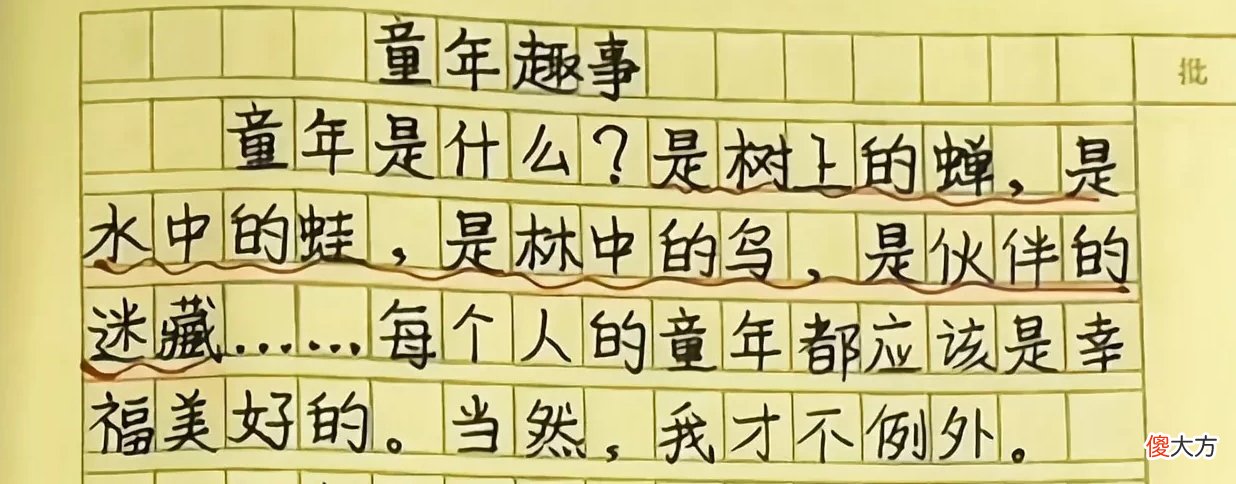 童年趣事
批
童年是什么?是树上的蝉,是
水中的蛙,是林中的鸟,是伙伴的
迷藏……每个人的童年都应该是幸
福美好的。当然,我才不例外。
傻大方